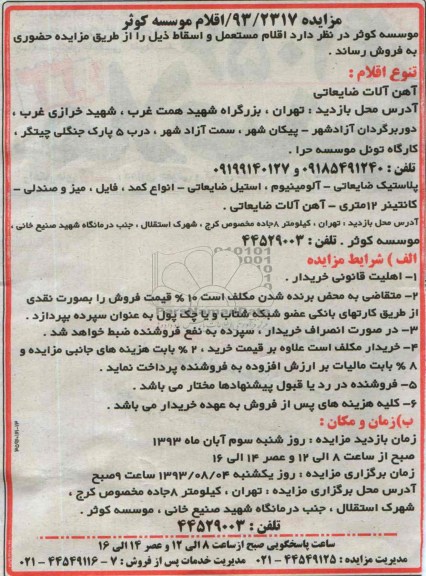 مزایده ۹۳/۲۳۱۷/اقلام موسسه کوثر
موسسه کوثر در نظر دارد اقلام مستعمل و اسقاط ذیل را از طریق مزایده حضوری
به فروش رساند .
تنوع اقلام :
آهن آلات ضایعاتی
آدرس محل بازدید : تهران ، بزرگراه شهید همت غرب ، شهید خرازی غرب ،
دوربرگردان آزادشهر - پیکان شهر ، سمت آزاد شهر ، درب ۵ پارک جنگلی چیتگر ،
کارگاه تونل موسسه حرا .
تلفن : ۰۹۱۸۵۴۹۱۲۴۰ و ۰۹۱۹۹۱۴۰۱۲۷
پلاستیک ضایعاتی - آلومینیوم ، استیل ضایعاتی - انواع کمد ، فایل ، میز و صندلی -
کانتینر ۱۲متری - آهن آلات ضایعاتی .
آدرس محل بازدید : تهران ، کیلومتر ۸جاده مخصوص کرج ، شهرک استقلال ، جنب درمانگاه شهید صنیع خانی ،
موسسه کوثر . تلفن : ۴۴۵۲۹۰۰۳
الف ) شرایط مزایده
۱- اهلیت قانونی خریدار .
۲- متقاضی به محض برنده شدن مکلف است ۱۰ % قیمت فروش را بصورت نقدی
از طریق کارتهای بانکی عضو شبکه شتاب و یا چک پول به عنوان سپرده بپردازد .
۳- در صورت انصراف خریدار ، سپرده به نفع فروشنده ضبط خواهد شد .
۴- خریدار مکلف است علاوه بر قیمت خرید ، ۲ % بابت هزینه های جانبی مزایده و
۸ % بابت مالیات بر ارزش افزوده به فروشنده پرداخت نماید .
۵- فروشنده در رد یا قبول پیشنهادها مختار می باشد .
۶- کلیه هزینه های پس از فروش به عهده خریدار می باشد .
ب)زمان و مکان :
زمان بازدید مزایده : روز شنبه سوم آبان ماه ۱۳۹۳
صبح از ساعت ۸ الی ۱۲ و عصر ۱۴ الی ۱۶
زمان برگزاری مزایده : روز یکشنبه ۱۳۹۳/۰۸/۰۴ ساعت ۹صبح
آدرس محل برگزاری مزایده : تهران ، کیلومتر ۸جاده مخصوص کرج ،
شهرک استقلال ، جنب درمانگاه شهید صنیع خانی ، موسسه کوثر .
تلفن : ۴۴۵۲۹۰۰۳
ساعت پاسخگویی صبح ازساعت ۸ الی ۱۲ و عصر ۱۴ الی ۱۶
مدیریت مزایده : ۴۴۵۴۹۱۲۵ - ۰۲۱ مدیریت خدمات پس از فروش : ۷ - ۴۴۵۴۹۱۱۶ - ۰۲۱